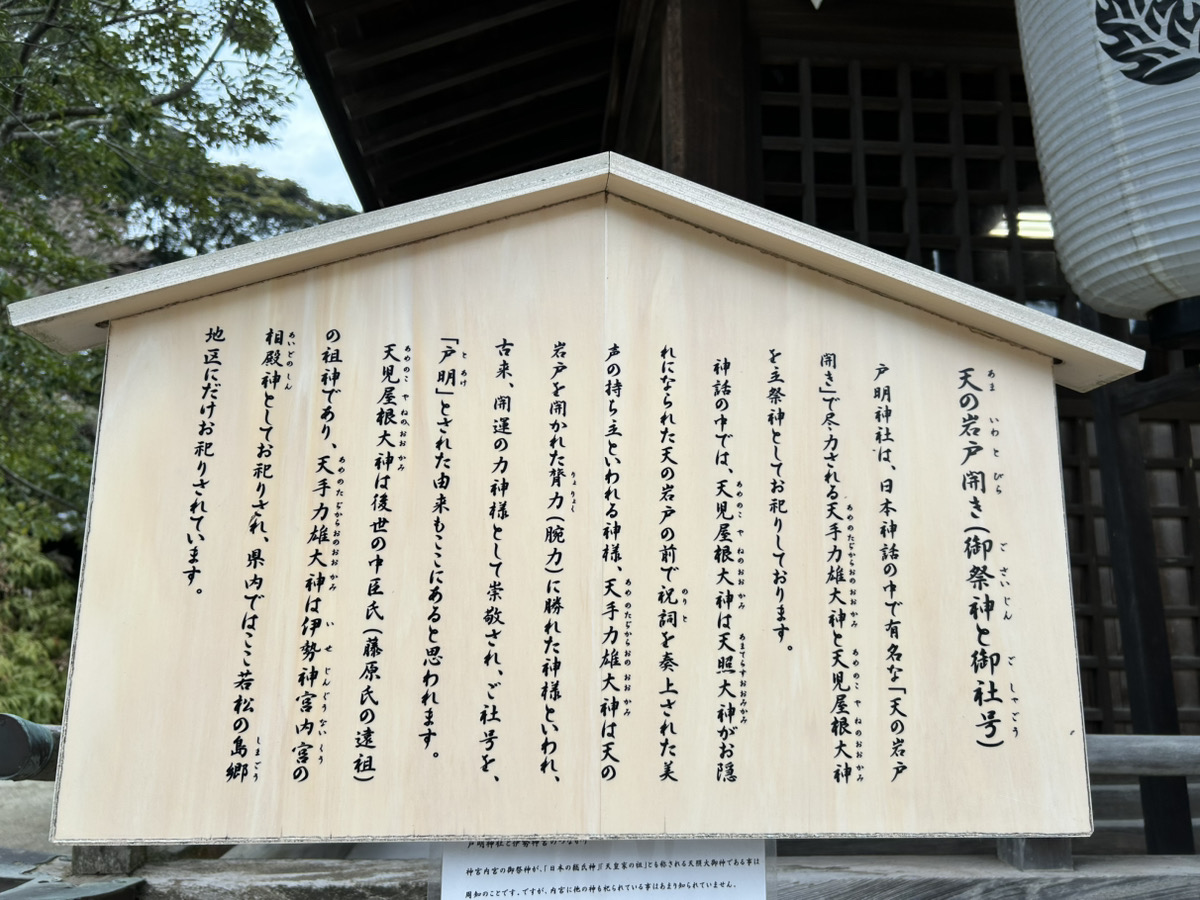 天の岩戸開き(御祭神と御社号)
戸明神社は、日本神話の中で有名な「天の岩戸
開き」で尽力される天手力雄大神と天児屋根大神
を主祭神としてお祀りしております。
神話の中では、天児屋根大神は天照大神がお隠
れになられた天の岩戸の前で祝詞を奏上された美
声の持ち主といわれる神様、天手力雄大神は天の
岩戸を開かれた膂力(腕力)に勝れた神様といわれ、
古来、開運の力神様として崇敬され、ご社号を、
「戸明」とされた由来もここにあると思われます。
天児屋根大神は後世の中臣氏(藤原氏の遠祖)
の祖神であり、天手力雄大神は伊勢神宮内宮の
相殿神としてお祀りされ、県内ではここ若松の島郷
地区にだけお祀りされています。
戸明神社と伊勢神宮のつながり
神宮内宮の御祭神が、「日本の総氏神=天皇家の祖」とも称される天照大御神である事は
周知のことです。ですが、内宮に他の神も祀られている事はあまり知られていません。